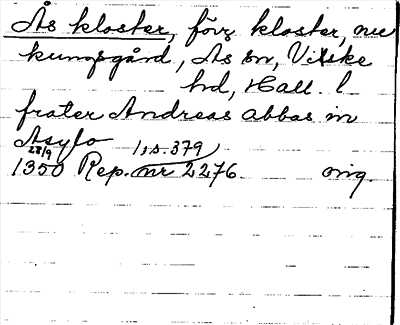 Ås kloster, förr kloster, nu
kungsgård, Ås sn, Viske
hd, Hall. l.
frater Andreas abbas in
Asylo
28/9 1, s. 379
1350 Rep. nr 2276. orig.